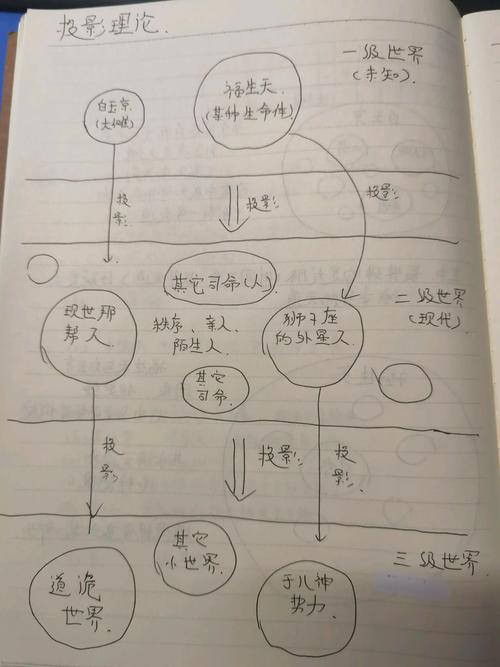 投影理论.
一级世界
(未知).
白玉京
福生天
(某种生命体)
投
影
投影
投影
其它司命(人)
二级世界
(现代)
现世那
帮人
秩序、亲人、
陌生人.
狮子座
的外星人
其它
司命.
投
影
投影
投
影.
三级世界
其它
小世界.
道诡
世界.
于儿神
势力.